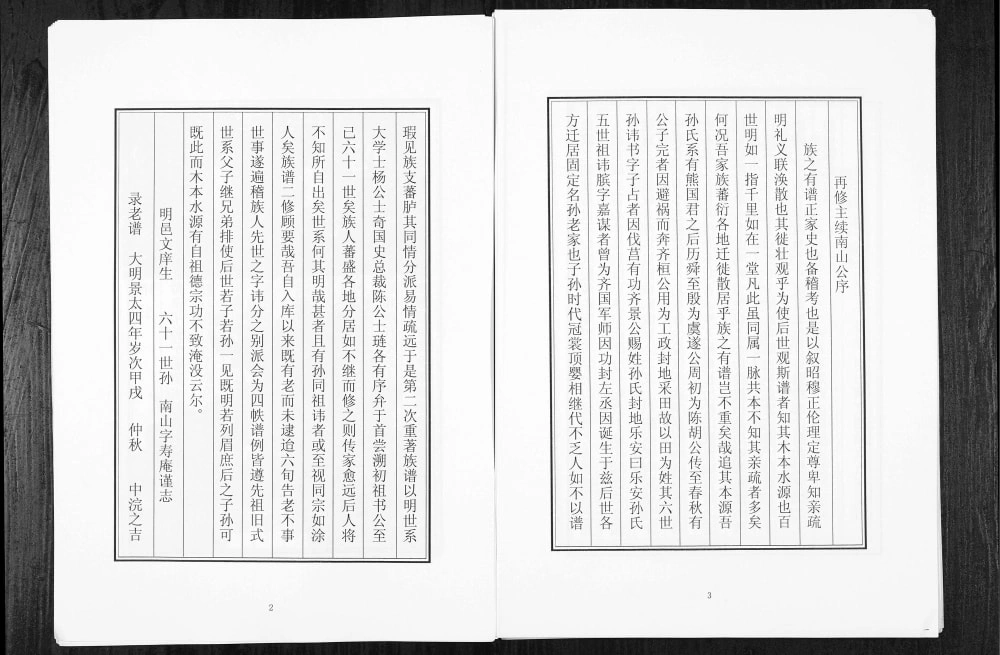 瑕见族支蕃胪其同情分派易情疏远于是第二次重著族谱以明世系
大学士杨公士奇国史总裁陈公士琏各有序弁于首尝溯初祖书公至
己六十一世矣族人蕃盛各地分居如不继而修之则传家愈远后人将
不知所自出矣世系何其明哉甚者且有孙同祖讳者或至视同宗如涂
人矣族谱二修顾要哉吾自入库以来既有老而未逮迨六旬告老不事
世事遂遍稽族人先世之字讳分之别派会为四帙谱例皆遵先祖旧式
世系父子继兄弟排使后世若子若孙一见既明若列眉庶后之子孙可
既此而木本水源有自祖德宗功不致淹没云尔。
明邑文庠生 六十一世孙 南山字寿庵谨志
录老谱 大明景太四年岁次甲戌 仲秋 中浣之吉
2
再修主续南山公序
族之有谱正家史也备稽考也是以叙昭穆正伦理定尊卑知亲疏
明礼义联涣散也其徙壮观乎为使后世观斯谱者知其木本水源也百
世明如一指千里如在一堂凡此虽同属一脉共本不知其亲疏者多矣
何况吾家族蕃衍各地迁徙散居乎族之有谱岂不重矣哉追其本源吾
孙氏系有熊国君之后历舜至殷为虞遂公周初为陈胡公传至春秋有
公子完者因避祸而奔齐桓公用为工政封地采田故以田为姓其六世
孙讳书字子占者因伐莒有功齐景公赐姓孙氏封地乐安曰乐安孙氏
五世祖讳膑字嘉谋者曾为齐国军师因功封左丞因诞生于兹后世各
方迁居固定名孙老家也子孙时代冠裳顶婴相继代不乏人如不以谱
3